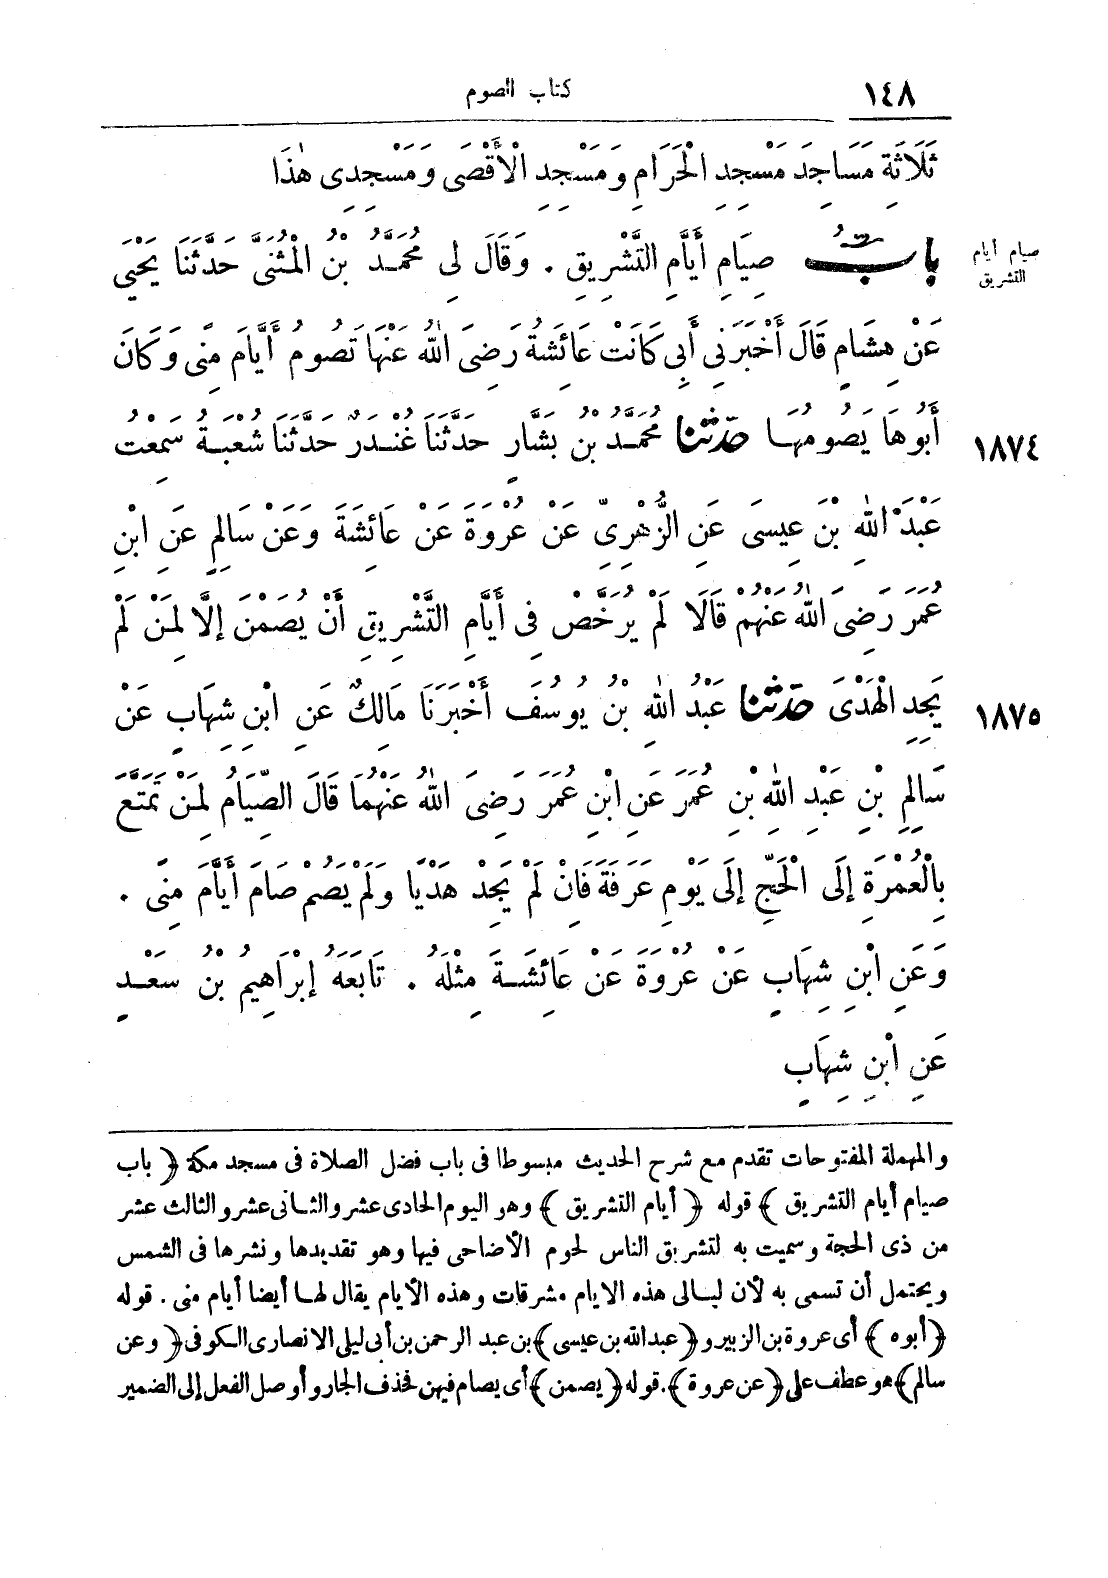 ١٤٨
كتاب الصوم
ثَلَاثَةِ مَسَاجِدَ مَسْجِدِ الْحَرَامِ وَمَسْجِدِ الْأَقْصَى وَمَسْجِدِى هٰذَا
صيام أيام
التشريق
بَابُ صِيَامِ أَيَّامِ التَّشْرِيقِ . وَقَالَ لِى مُحَمَّدُ بْنُ الْمُثَنَّى حَدَّثَنَا يَحْيَى
عَنْ هِشَامٍ قَالَ أَخْبَرَنِى أَبِى كَانَتْ عَائِشَةُ رَضِىَ اللهُ عَنْهَا تَصُومُ أَيَّامَ مِنًى وَكَانَ
١٨٧٤
أَبُوهَا يَصُومُهَا حَدَّثَنَا مُحَمَّدُ بْنُ بَشَّارٍ حَدَّثَنَا غُنْدَرٌ حَدَّثَنَا شُعْبَةُ سَمِعْتُ
عَبْدَ اللهِ بْنَ عِيسَى عَنِ الزُّهْرِىِّ عَنْ عُرْوَةَ عَنْ عَائِشَةَ وَعَنْ سَالِمٍ عَنِ ابْنِ
عُمَرَ رَضِىَ اللهُ عَنْهُمْ قَالَا لَمْ يُرَخَّصْ فِى أَيَّامِ التَّشْرِيقِ أَنْ يُصَمْنَ إِلَّا لِمَنْ لَمْ
١٨٧٥
يَجِدِ الْهَدْىَ حَدَّثَنَا عَبْدُ اللهِ بْنُ يُوسُفَ أَخْبَرَنَا مَالِكٌ عَنِ ابْنِ شِهَابٍ عَنْ
سَالِمِ بْنِ عَبْدِ اللهِ بْنِ عُمَرَ عَنِ ابْنِ عُمَرَ رَضِىَ اللهُ عَنْهُمَا قَالَ الصِّيَامُ لِمَنْ تَمَتَّعَ
بِالْعُمْرَةِ إِلَى الْحَجِّ إِلَى يَوْمِ عَرَفَةَ فَانْ لَمْ يَجِدْ هَدْيًا وَلَمْ يَصُمْ صَامَ أَيَّامَ مِنًى .
وَعَنِ ابْنِ شِهَابٍ عَنْ عُرْوَةَ عَنْ عَائِشَةَ مِثْلَهُ . تَابَعَهُ إِبْرَاهِيمُ بْنُ سَعْدٍ
عَنِ ابْنِ شِهَابٍ
والمهملة المفتوحات تقدم مع شرح الحديث مبسوطا فى باب فضل الصلاة فى مسجد مكة ﴿ باب
صيام أيام التشريق ﴾ قوله ﴿ أيام التشريق ﴾ وهو اليوم الحادى عشر والثانى عشر والثالث عشر
من ذى الحجة وسميت به لتشريق الناس لحوم الأضاحى فيها وهو تقديدها ونشرها فى الشمس
ويحتمل أن تسمى به لأن ليالى هذه الايام مشرقات وهذه الأيام يقال لها أيضا أيام منى . قوله
﴿ أبوه ﴾ أى عروة بن الزبير و ﴿ عبد الله بن عيسى ﴾ بن عبد الرحمن بن أبى ليلى الانصارى الكوفى ﴿ وعن
سالم ﴾ هو عطف على ﴿ عن عروة ﴾ . قوله ﴿ يصمن ﴾ أى يصام فيهن فحذف الجار وأوصل الفعل إلى الضمير